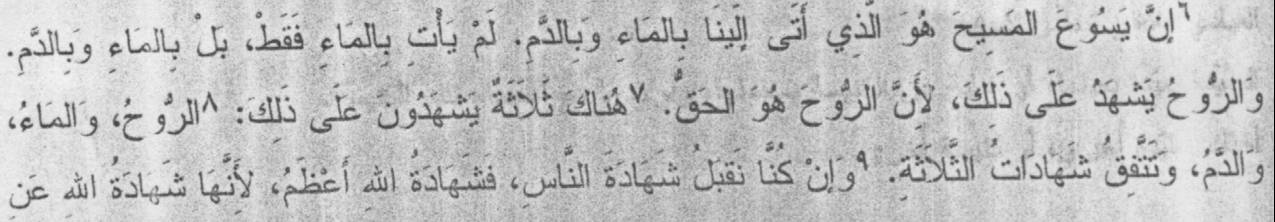 ٦إِنَّ يَسُوعَ المَسِيحَ هُوَ الَّذِي أَتَى إلَينَا بِالمَاءِ وَبِالدَّمِ. لَمْ يَأْتِ بِالمَاءِ فَقَطْ، بَلْ بِالمَاءِ وَبِالدَّمِ.
وَالرُّوحُ يَشهَدُ عَلَى ذَلِكَ، لِأَنَّ الرُّوحَ هُوَ الحَقُّ. ٧هُنَاكَ ثَلَاثَةٌ يَشهَدُونَ عَلَى ذَلِكَ: ٨الرُّوحُ، وَالمَاءُ،
وَالدَّمُ، وَتَتَّفِقُ شَهَادَاتُ الثَّلَاثَةِ. ٩وَإنْ كُنَّا نَقبَلُ شَهَادَةَ النَّاسِ، فشَهَادَةُ اللهِ أَعْظَمُ، لِأَنَّهَا شَهادَةُ اللهِ عَنِ